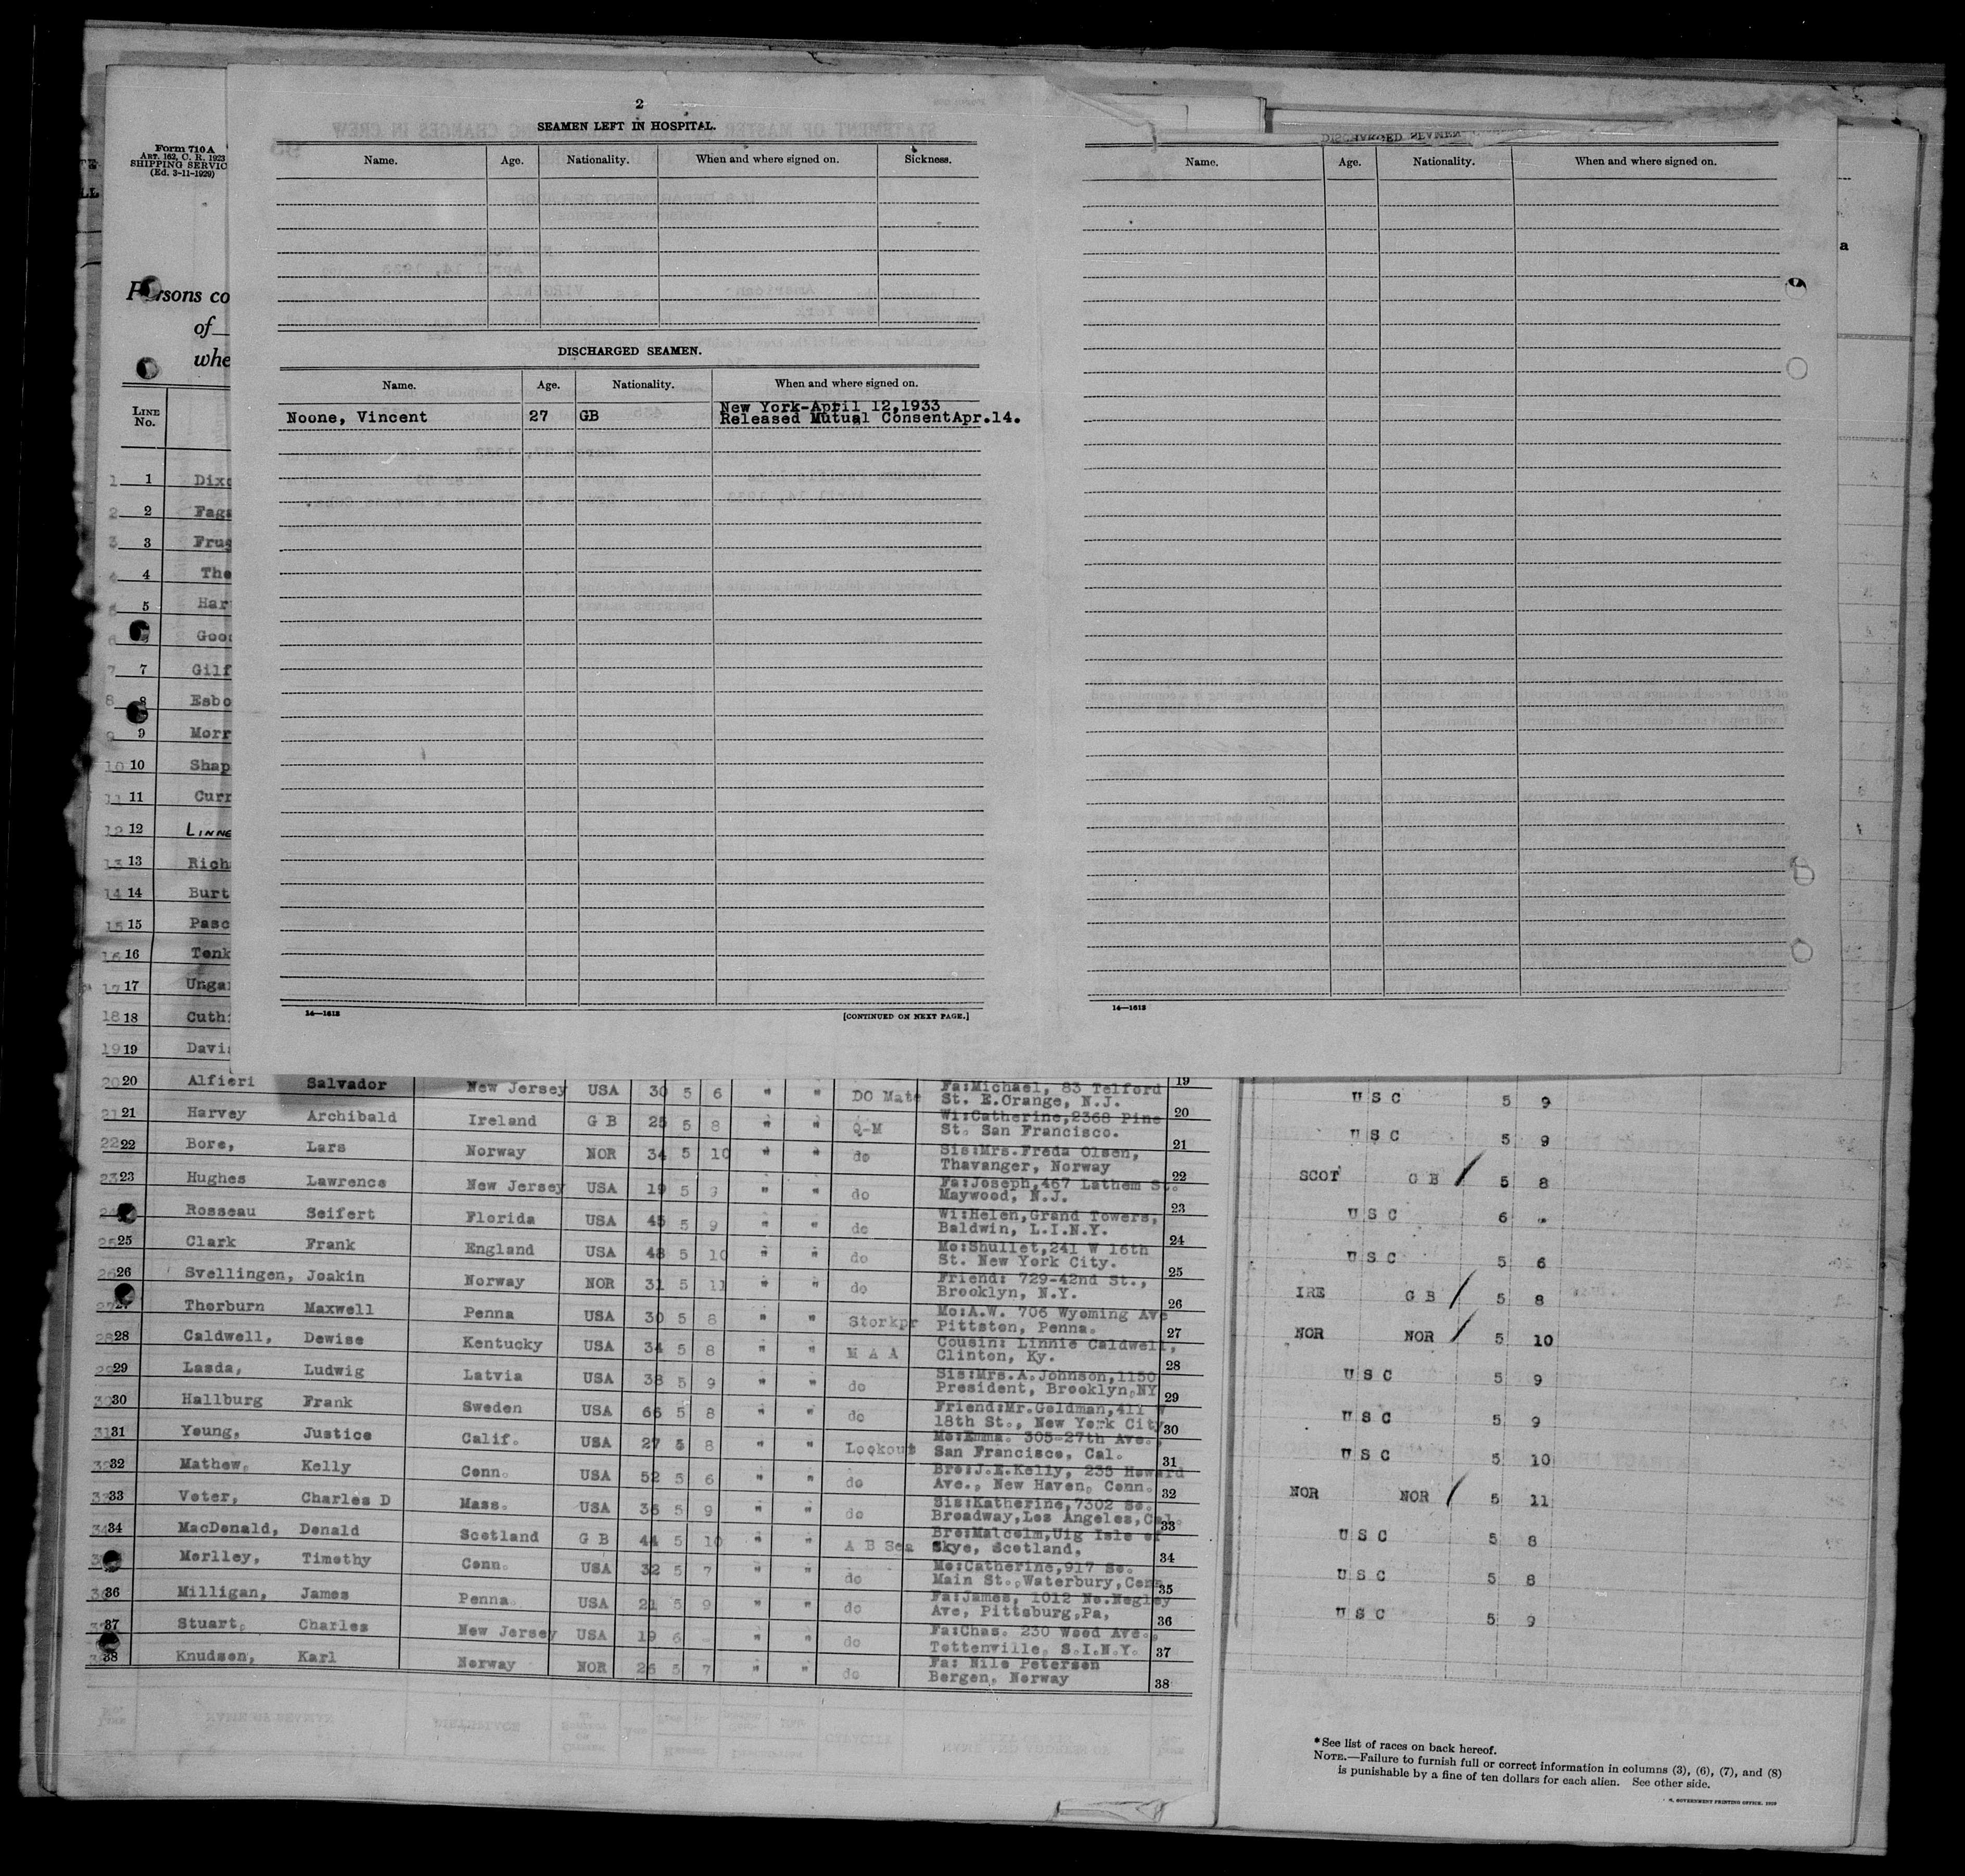 2
SEAMEN LEFT IN HOSPITAL.
Name. Age. Nationality. When and where signed on. Sickness.
DISCHARGED SEAMEN.
Name. Age. Nationality. When and where signed on.
New York-April 12,1933
Noone, Vincent 27 GB Released Mutual ConsentApr.14.
14—1612
[CONTINUED ON NEXT PAGE.]
DISCHARGED SEAMEN
Name. Age. Nationality. When and where signed on.
14—1612
Form 710 A
ART. 162, C. R. 1923
SHIPPING SERVIC
(Ed. 3-11-1929)
Persons co
of
whe
LINE
No.
1 1 Dixo
2 2 Fags
3 3 Frug
4 4 The
5 Har
6 Good
7 7 Gilf
8 8 Esbo
9 9 Morr
10 10 Shap
11 11 Curr
12 12 LINNE
13 13 Rich
14 14 Burt
15 15 Pasc
16 16 Tonk
17 17 Unga
18 18 Cuth
19 19 Davi
19
20 20 Alfieri Salvador New Jersey USA 30 5 6 " " DO Mate Fa:Michael, 83 Telford
St. E.Orange, N.J. 20
21 21 Harvey Archibald Ireland G B 25 5 8 " " Q-M Wi:Catherine,2368 Pine
St. San Francisco. 21
22 22 Bore, Lars Norway NOR 34 5 10 " " do Sis:Mrs.Freda Olsen,
Thavanger, Norway 22
23 23 Hughes Lawrence New Jersey USA 19 5 9 " " do Fa:Joseph,467 Lathem St.
Maywood, N.J. 23
Rosseau Seifert Florida USA 45 5 9 " " do Wi:Helen,Grand Towers,
Baldwin, L.I.N.Y. 24
25 25 Clark Frank England USA 48 5 10 " " do Mo:Shullet,241 W 16th
St. New York City. 25
26 26 Svellingen, Joakin Norway NOR 31 5 11 " " do Friend: 729-42nd St.,
Brooklyn, N.Y. 26
27 27 Thorburn Maxwell Penna USA 30 5 8 " " Storkpr Mo:A.W. 706 Wyoming Ave
Pittston, Penna. 27
28 28 Caldwell, Dewise Kentucky USA 34 5 8 " " M A A Cousin: Linnie Caldwell,
Clinton, Ky. 28
29 29 Lasda, Ludwig Latvia USA 38 5 9 " " do Sis:Mrs.A.Johnson,1150
President, Brooklyn,NY 29
30 30 Hallburg Frank Sweden USA 66 5 8 " " do Friend:Mr.Goldman,411 W
18th St., New York City 30
31 31 Young, Justice Calif. USA 27 5 8 " " Lookout Mo:Emma. 305-27th Ave.,
San Francisco, Cal. 31
32 32 Mathew, Kelly Conn. USA 52 5 6 " " do Bro:J.E.Kelly, 235 Howard
Ave., New Haven, Conn. 32
33 33 Voter, Charles D Mass. USA 36 5 9 " " do Sis:Katherine,7302 So.
Broadway,Los Angeles,Cal. 33
34 34 MacDonald, Donald Scotland G B 44 5 10 " " A B Sea Bro:Malcolm,Uig Isle of
Skye, Scotland. 34
Morlley, Timothy Conn. USA 32 5 7 " " do Mo:Catherine,917 So.
Main St.,Waterbury,Conn 35
36 36 Milligan, James Penna. USA 21 5 9 " " do Fa:James, 1012 No.Negley
Ave, Pittsburg,Pa, 36
37 37 Stuart, Charles New Jersey USA 19 6 - " " do Fa:Chas. 230 Wood Ave.,
Tottenville, S.I.N.Y. 37
38 38 Knudsen, Karl Norway NOR 26 5 7 " " do Fa: Nils Petersen
Bergen, Norway 38
U S C 5 9
U S C 5 9
SCOT G B / 5 8
U S C 6 -
U S C 5 6
IRE G B / 5 8
NOR NOR / 5 10
U S C 5 9
U S C 5 9
U S C 5 10
NOR NOR / 5 11
U S C 5 8
U S C 5 8
U S C 5 9
*See list of races on back hereof.
NOTE.—Failure to furnish full or correct information in columns (3), (6), (7), and (8)
is punishable by a fine of ten dollars for each alien. See other side.
GOVERNMENT PRINTING OFFICE.